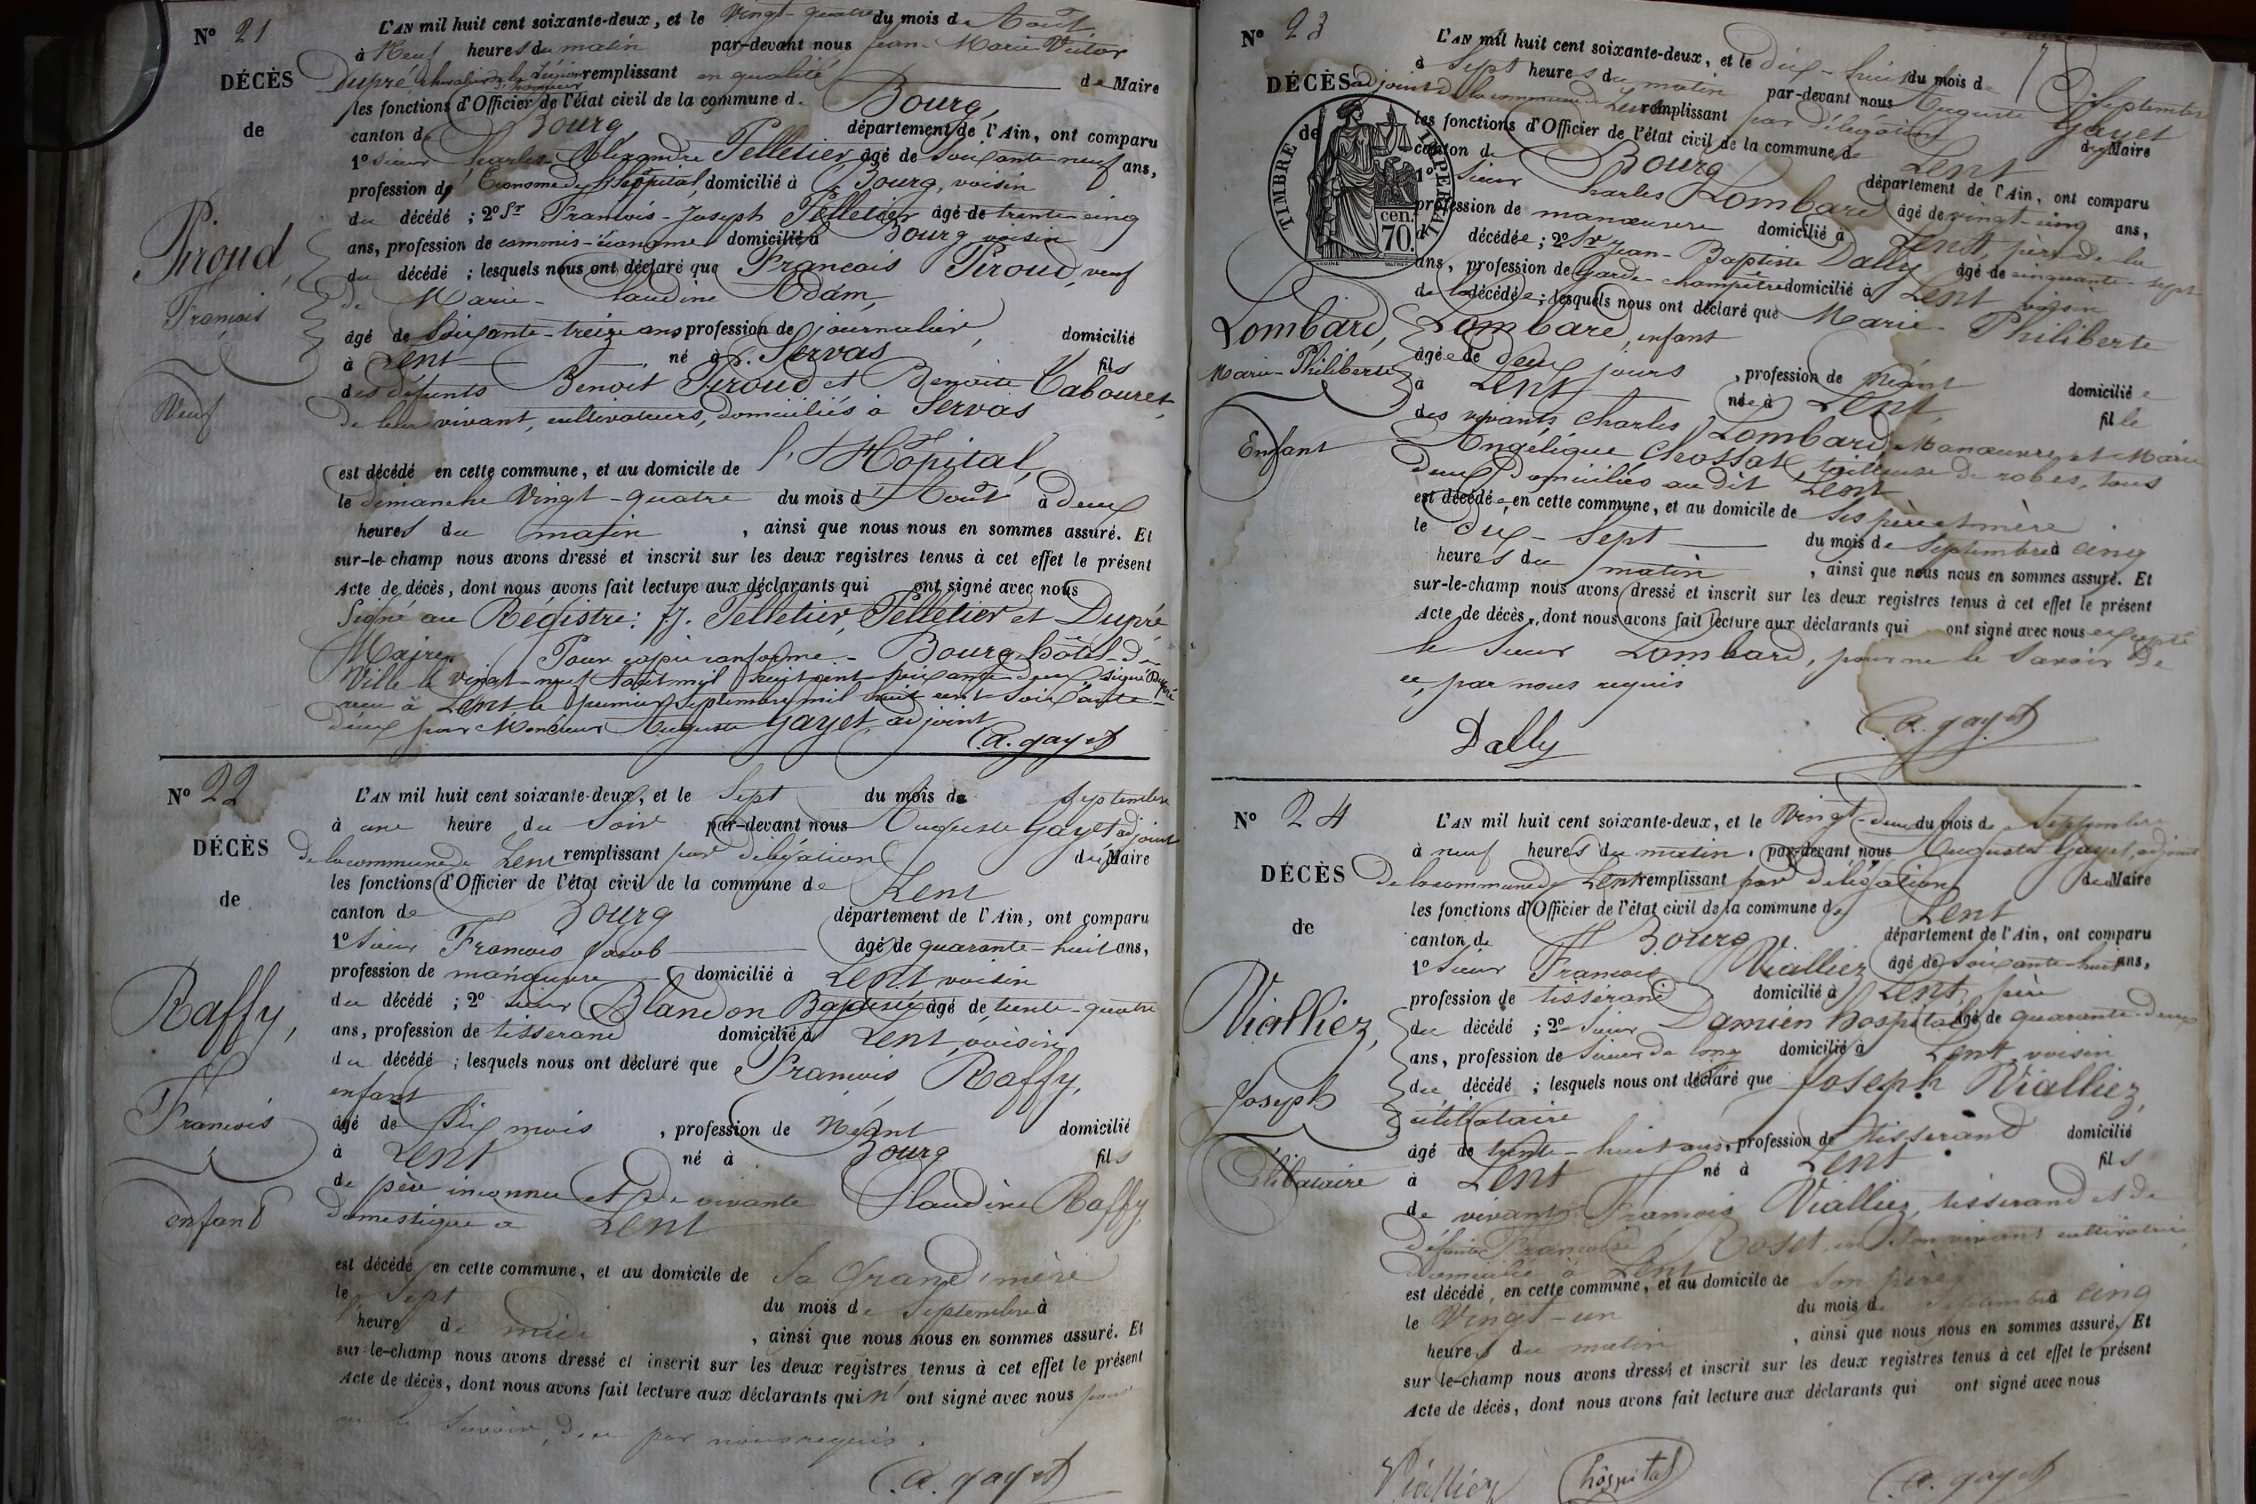 N° 21
DÉCÈS
de
Piroud,
François
Veuf
L'AN mil huit cent soixante-deux, et le vingt-quatre du mois d'Août
à Neuf heures du matin par-devant nous Jean-Marie Victor
Dupré, chevalier de la Légion d'honneur remplissant en qualité de Maire
les fonctions d'Officier de l'état civil de la commune d. Bourg,
canton de Bourg département de l'Ain, ont comparu
1° Sieur Charles-Alexandre Pelletier, âgé de Soixante-neuf ans,
profession d' Économe de l'hôpital, domicilié à Bourg, voisin
du décédé ; 2° Sr François-Joseph Pelletier âgé de trente-cinq
ans, profession de commis-économe domicilié à Bourg voisin
du décédé ; lesquels nous ont déclaré que François Piroud, veuf
de Marie-Claudine Adam,
âgé de Soixante-treize ans profession de journalier, domicilié
à Lent né à Servas fils
des défunts Benoit Piroud et Benoite Tabouret,
de leur vivant, cultivateurs, domiciliés à Servas
est décédé en cette commune, et au domicile de l'Hôpital,
le dimanche Vingt-quatre du mois d'Août à deux
heures du matin , ainsi que nous nous en sommes assuré. Et
sur-le-champ nous avons dressé et inscrit sur les deux registres tenus à cet effet le présent
Acte de décès, dont nous avons fait lecture aux déclarants qui ont signé avec nous
Signé au Régistre: fj. Pelletier, Pelletier et Dupré
Maire. Pour copie conforme - Bourg hôtel-de-
Ville le vingt-neuf Août mil huit cent soixante-deux signé Dupré
reçu à Lent le premier Septembre mil huit cent Soixante-
deux par Monsieur Auguste Gayet adjoint
a. gayet
N° 22
DÉCÈS
de
Raffy,
François
enfant
L'AN mil huit cent soixante-deux, et le Sept du mois de Septembre
à une heure du Soir par-devant nous Auguste Gayet adjoint
de la commune de Lent remplissant par délégation du Maire
les fonctions d'Officier de l'état civil de la commune de Lent
canton de Bourg département de l'Ain, ont comparu
1° Sieur François Jacob âgé de quarante-huit ans,
profession de manœuvre domicilié à Lent voisin
du décédé ; 2° Sieur Blandon Baptiste âgé de trente-quatre
ans, profession de tisserand domicilié à Lent, voisin
du décédé ; lesquels nous ont déclaré que François Raffy,
enfant
âgé de Six mois , profession de Néant domicilié
à Lent né à Bourg fils
de père inconnu et de vivante Claudine Raffy,
domestique à Lent
est décédé en cette commune, et au domicile de sa Grand'mère
le Sept du mois de Septembre à
heure de midi , ainsi que nous nous en sommes assuré. Et
sur-le-champ nous avons dressé et inscrit sur les deux registres tenus à cet effet le présent
Acte de décès, dont nous avons fait lecture aux déclarants qui n'ont signé avec nous pour
ne le Savoir, de ce par nous requis.
a. gayet
N° 23
DÉCÈS
de
TIMBRE IMPÉRIAL
70 cen.
Lombard,
Marie-Philiberte
Enfant
L'AN mil huit cent soixante-deux, et le dix-huit du mois de Septembre
à Sept heures du matin par-devant nous Auguste Gayet
adjoint de la commune de Lent remplissant par délégation du Maire
les fonctions d'Officier de l'état civil de la commune de Lent
canton de Bourg département de l'Ain, ont comparu
1° Sieur Charles Lombard âgé de vingt-cinq ans,
profession de manœuvre domicilié à Lent, père de la
décédée ; 2° Sr Jean-Baptiste Dally âgé de cinquante-sept
ans, profession de Garde-champêtre domicilié à Lent voisin
de la décédée ; lesquels nous ont déclaré que Marie-Philiberte
Lombard, enfant
âgée de deux jours , profession de néant domiciliée
à Lent née à Lent, fille
des vivants Charles Lombard, Manœuvre et Marie
Angélique Chossat, tailleuse de robes, tous
deux domiciliés au dit Lent
est décédée, en cette commune, et au domicile de Ses père et mère
le dix-Sept du mois de Septembre à cinq
heures du matin , ainsi que nous nous en sommes assuré. Et
sur-le-champ nous avons dressé et inscrit sur les deux registres tenus à cet effet le présent
Acte de décès, dont nous avons fait lecture aux déclarants qui ont signé avec nous excepté
le Sieur Lombard, pour ne le Savoir de
ce, par nous requis
Dally a. gayet
N° 24
DÉCÈS
de
Vialliez,
Joseph
Célibataire
L'AN mil huit cent soixante-deux, et le Vingt-deux du mois de Septembre
à neuf heures du matin, par-devant nous Auguste Gayet, adjoint
de la commune de Lent remplissant par délégation du Maire
les fonctions d'Officier de l'état civil de la commune de Lent
canton de Bourg département de l'Ain, ont comparu
1° Sieur François Vialliez âgé de Soixante-huit ans,
profession de tisserand domicilié à Lent, père
du décédé ; 2° Sieur Damien hospital âgé de quarante-deux
ans, profession de Scieur de long domicilié à Lent, voisin
du décédé ; lesquels nous ont déclaré que Joseph Vialliez,
célibataire
âgé de trente-huit ans, profession de tisserand domicilié
à Lent né à Lent fils
de vivant François Vialliez, tisserand et de
défunte Françoise Roset, en son vivant cultivatrice,
domiciliée à Lent
est décédé, en cette commune, et au domicile de son père
le Vingt-un du mois de Septembre à cinq
heures du matin , ainsi que nous nous en sommes assuré. Et
sur-le-champ nous avons dressé et inscrit sur les deux registres tenus à cet effet le présent
Acte de décès, dont nous avons fait lecture aux déclarants qui ont signé avec nous
Vialliez hôspital a. gayet